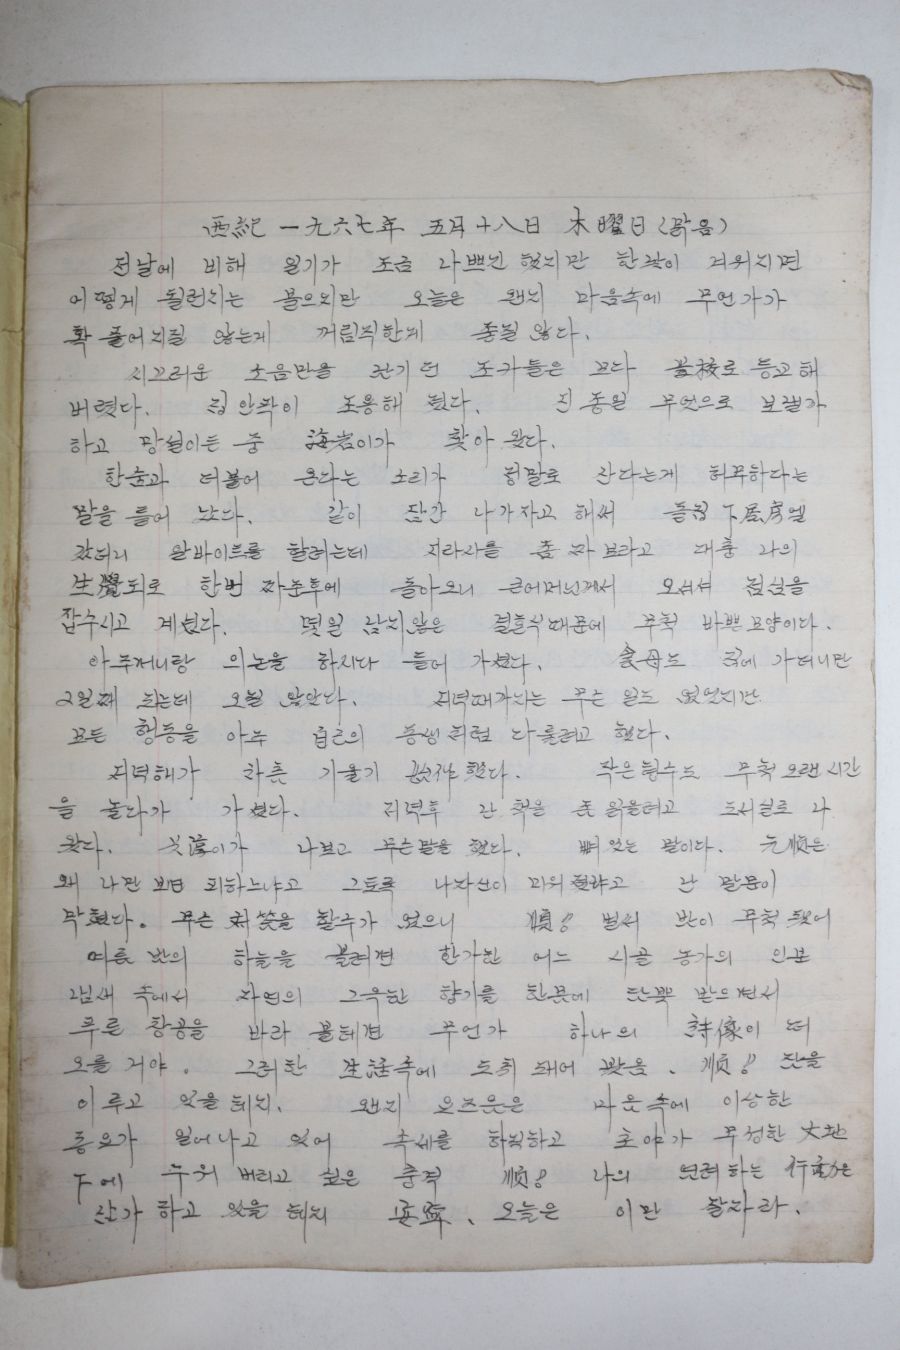 西紀 一九六七年 五月 十八日 木曜日 (맑음)
전날에 비해 일기가 조금 나쁘긴 했지만 한쪽이 지워지면
어떻게 될런지는 몰으지만 오늘은 왠지 마음속에 무언가가
확 풀어지질 않는게 꺼림칙한게 좋질 않다.
시끄러운 소음만을 조카들은 모다 登校로 등교해
버렸다. 집안쪽이 조용해 졌다. 진종일 무엇으로 보낼가
하고 망설이든 중 海岩이가 찾아 왔다.
한숨과 더불어 온다는 소리가 정말로 산다는게 허무하다는
말을 들어 났다. 같이 잠간 나가자고 해서 돌집 下居房엘
갔더니 알바이트를 할려는데 좀 짜 보라고 대충 나의
生覺되로 한번 짜준후에 돌아오니 큰어머님께서 오셔서 점심을
잡수시고 계셨다. 몇일 남지않은 결혼식때문에 무척 바쁜모양이다.
아주머니랑 의논을 하시다 들어 가셨다. 食母도 집에 가더니만
2일째 되는데 오질 않았다. 저녁때가지는 무슨 일도 없었지만
모든 행동을 아주 동생처럼 다룰려고 했다.
저녁해가 차츤 기울기 始作했다. 작은형수도 무척 오랜 시간
을 놀다가 가셨다. 저녁후 난 책을 좀 읽을려고 도서실로 나
왔다. 이가 나보고 무슨말을 했다. 뼈있는 말이다. 元順은
왜 나만 보면 피하느냐고 그토록 나자신이 미워졌냐고 난 말문이
막혔다. 무슨 対答을 할수가 없으니 順!! 벌써 밤이 무척 됐어
여름 밤의 하늘을 볼려면 한가한 어느 시골 농가의 인분
냄새 속에서 자연의 그윽한 향기를 한몸에 담뿍 받으면서
푸른 창공을 바라 볼테면 무언가 하나의 詩像이 떠
오를 거야. 그러한 生活속에 도취 돼어 봤음. 順!! 잠을
이루고 있을테지. 왠지 요즈음은 마음속에 이상한
동요가 일어나고 있어 속세를 하직하고 초야가 무성한 大地
下에 누워 버리고 싶은 충격 順!! 나의 염려하는 行動은
삼가 하고 있을 테지 安寧. 오늘은 이만 잘자라.